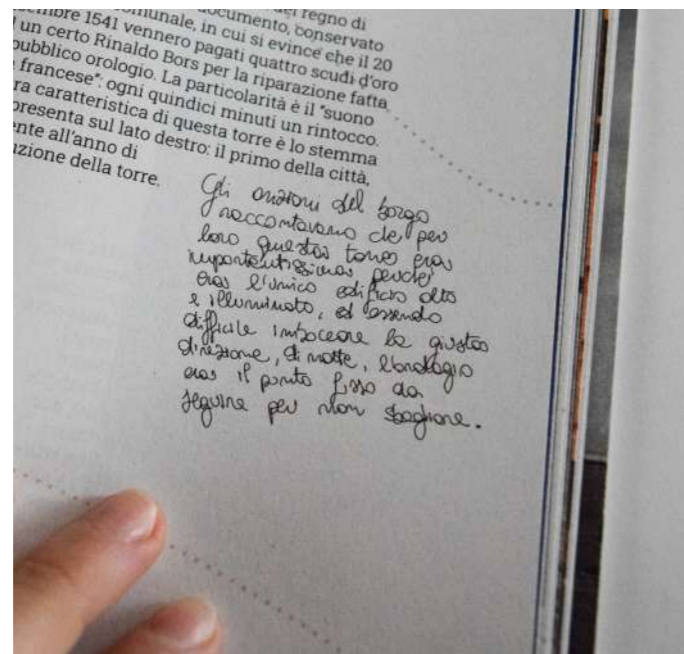 del regno di
documento, conservato
comunale, in cui si evince che il 20
1541 vennero pagati quattro scudi d'oro
un certo Rinaldo Bors per la riparazione fatta
pubblico orologio. La particolarità è il "suono
francese": ogni quindici minuti un rintocco.
ra caratteristica di questa torre è lo stemma
presenta sul lato destro: il primo della città,
ente all'anno di
uzione della torre.
Gli anziani del borgo
raccontavano che per
loro questa torre era
importantissima perché
era l'unico edificio alto
e illuminato, ed essendo
difficile imboccare la giusta
direzione, di notte, l'orologio
era il punto fisso da
seguire per non sbagliare.